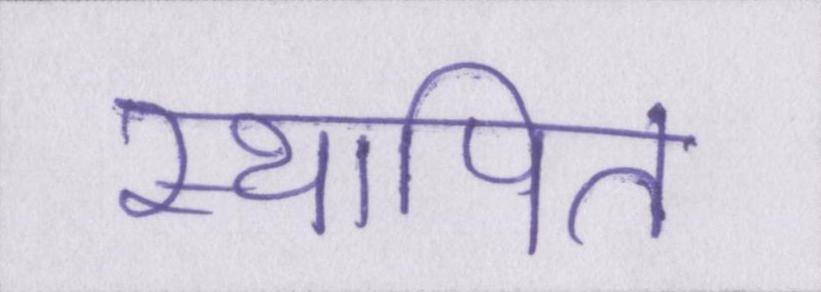 स्थापित